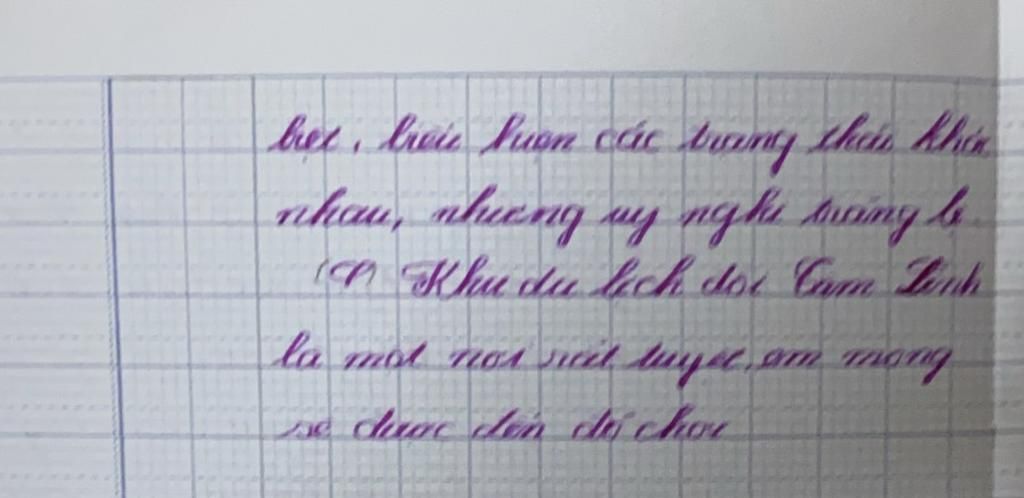 biệt, biểu hiện các trạng thái khác
nhau, nhưng uy nghi tráng lệ
(4) Khu du lịch đồi Tâm Linh
là một nơi rất tuyệt, em mong
sẽ được đến đó chơi